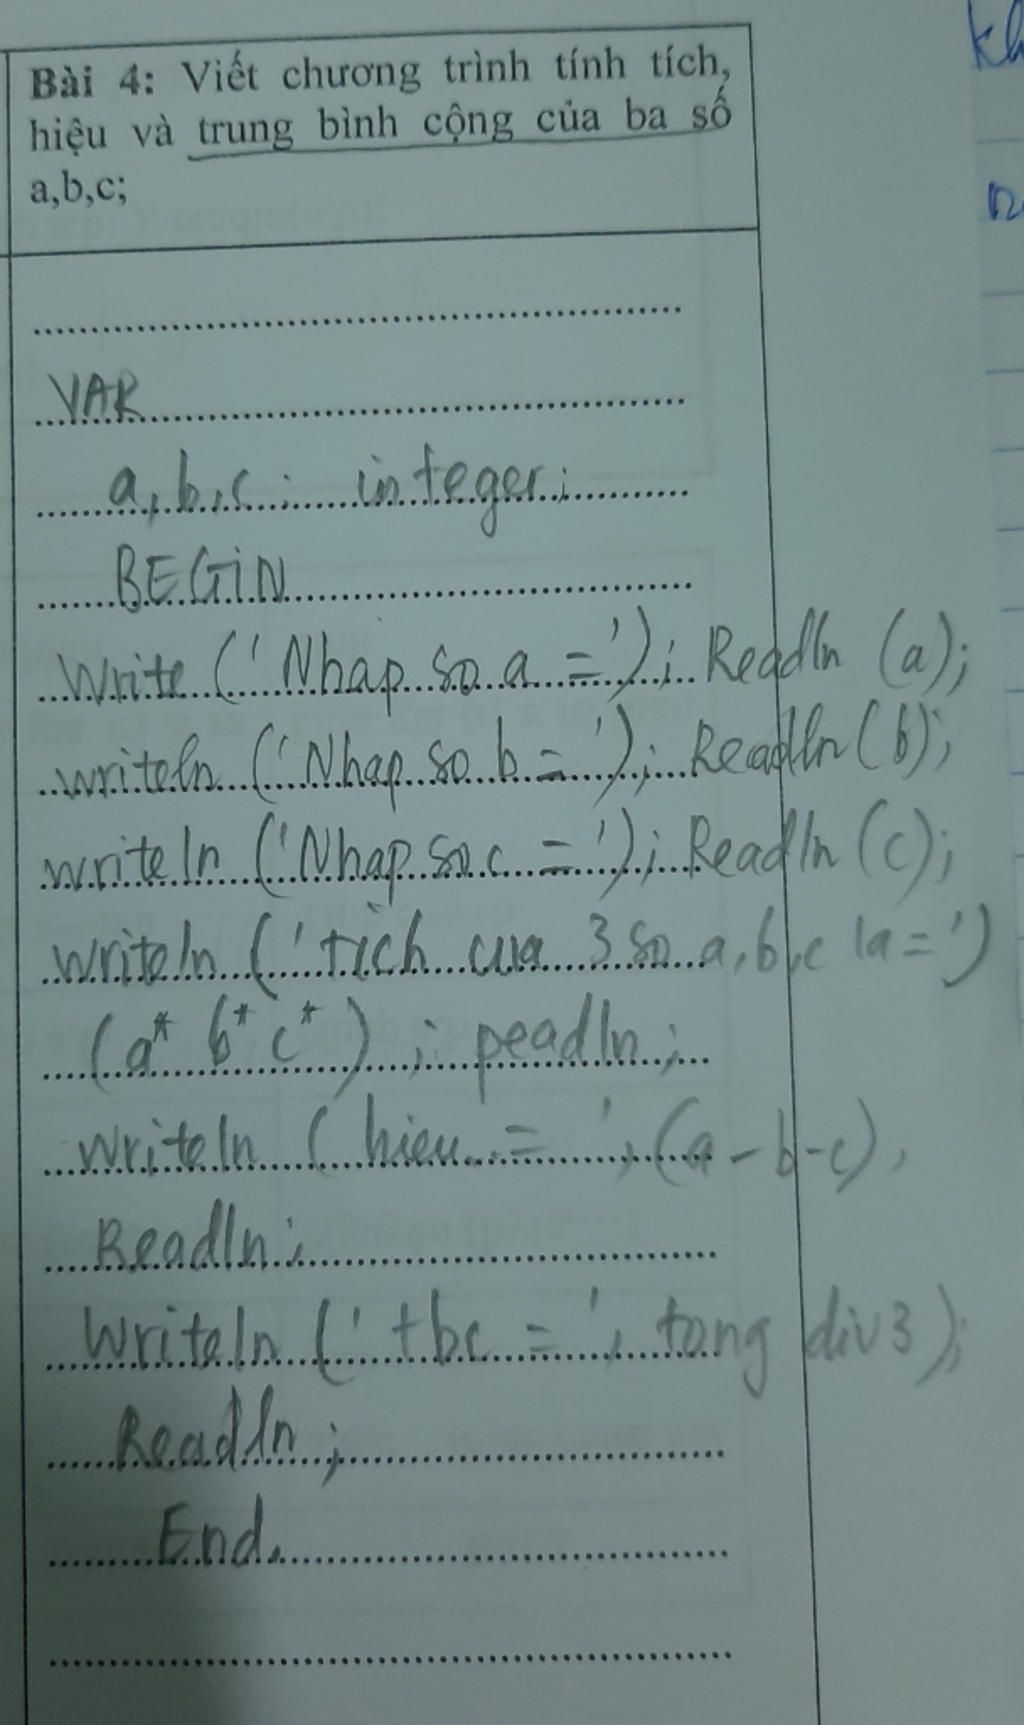 Bài 4: Viết chương trình tính tích,
hiệu và trung bình cộng của ba số
a,b,c;
VAR
a,b,c : integer;
BEGiN
Write ('Nhap so a ='); Readln (a);
writeln ('Nhap so b = '); Readln (b);
writeln ('Nhap so c = '); Readln (c);
writeln (' tich cua 3 so a,b,c la =')
(a* b* c*) ; peadln ;
writeln ( hieu = ', (a - b - c),
Readln ;
writeln (' tbc = ', tong div 3 );
Readln ;
End.